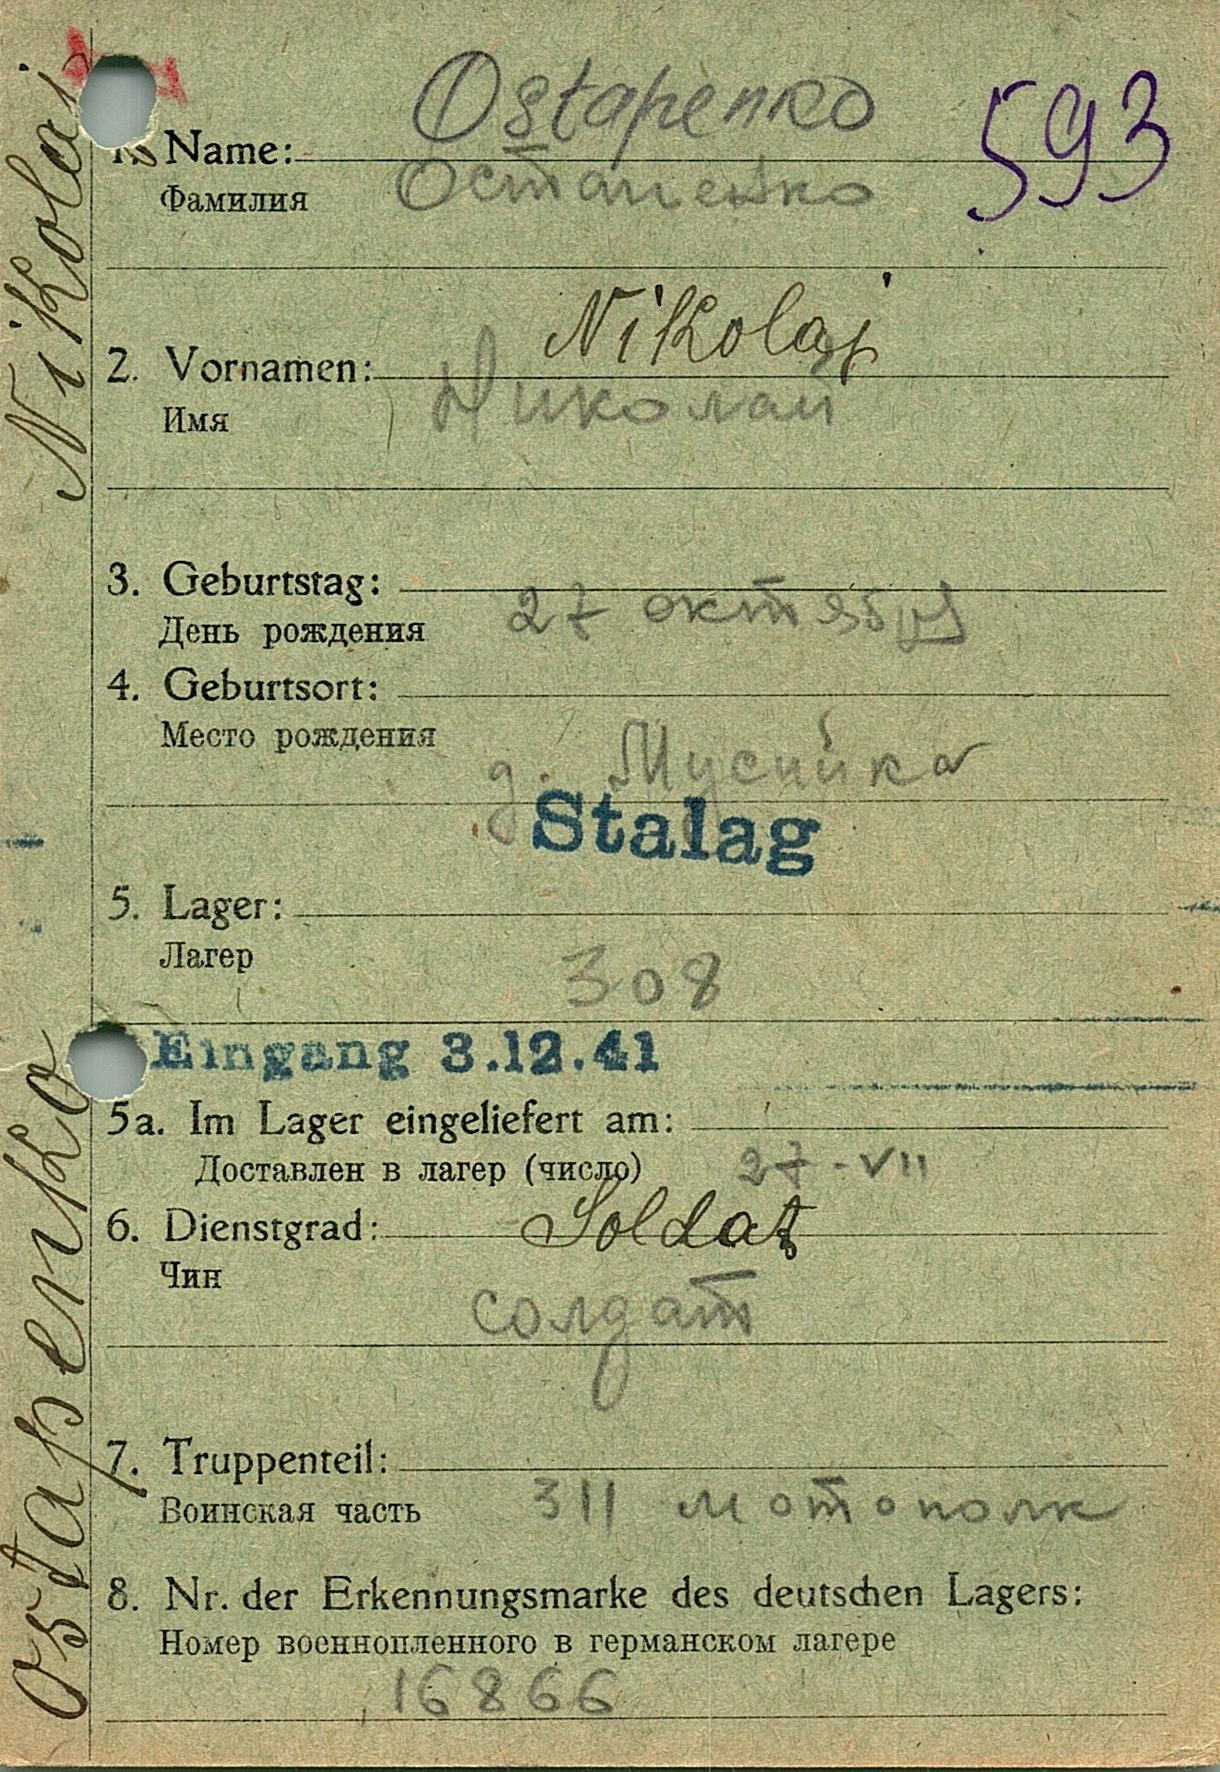 Ostapenko
593
1. Name:
Фамилия
Остапенко
Nikolaj
2. Vornamen:
Имя
Николай
3. Geburtstag:
День рождения
27 октября
4. Geburtsort:
Место рождения
д. Мусийка
Stalag
5. Lager:
Лагер
308
Eingang 3.12.41
5a. Im Lager eingeliefert am:
Доставлен в лагер (число)
27-VII
6. Dienstgrad: Soldat
Чин
солдат
7. Truppenteil:
Воинская часть
311 мотополк
8. Nr. der Erkennungsmarke des deutschen Lagers:
Номер военнопленного в германском лагере
16866
Ostapenko Nikolai